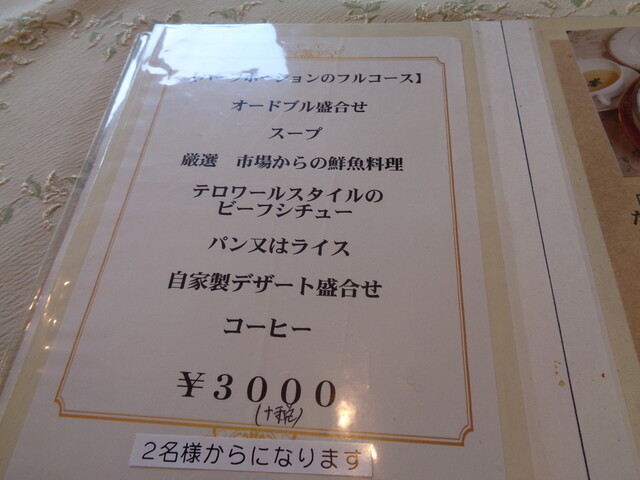 ポーションのフルコース】
オードブル盛合せ
スープ
厳選 市場からの鮮魚料理
テロワールスタイルの
ビーフシチュー
パン又はライス
自家製デザート盛合せ
コーヒー
¥3000
(+税)
2名様からになります